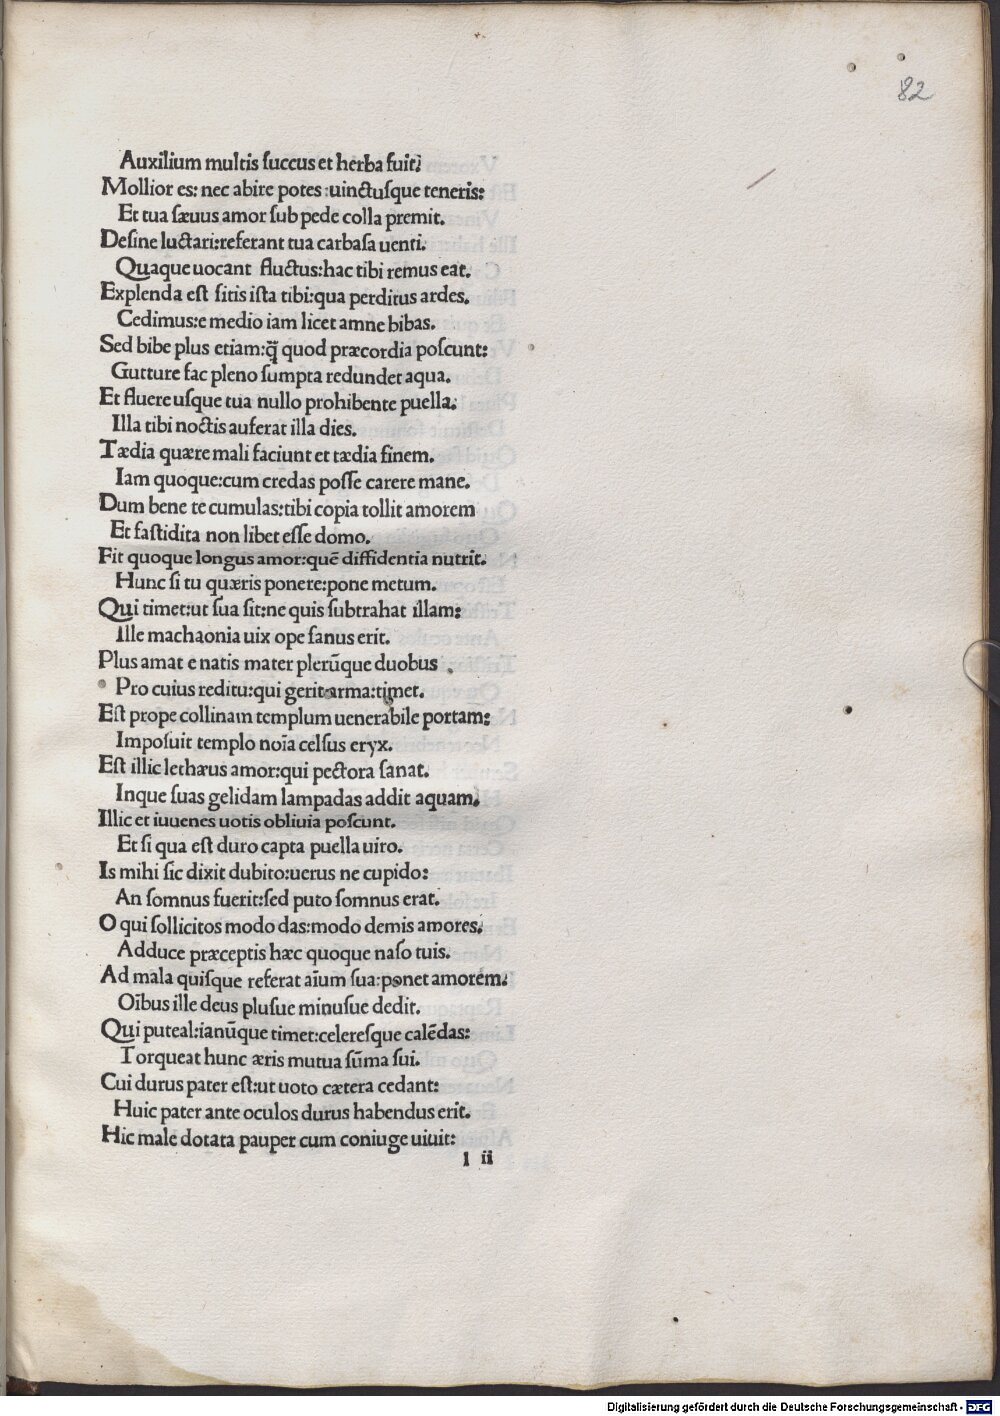 82
Auxilium multis ſuccus et herba fuit?
Mollior es: nec abire potes: uinctuſque teneris:
Et tua ſæuus amor ſub pede colla premit.
Deſine luctari: referant tua carbaſa uenti.
Quaque uocant fluctus: hac tibi remus eat.
Explenda eſt ſitis iſta tibi: qua perditus ardes.
Cedimus: e medio iam licet amne bibas.
Sed bibe plus etiam: q̃ quod præcordia poſcunt:
Gutture fac pleno ſumpta redundet aqua.
Et fluere uſque tua nullo prohibente puella:
Illa tibi noctis auferat illa dies.
Tædia quære mali faciunt et tædia finem.
Iam quoque: cum credas poſſe carere mane.
Dum bene te cumulas: tibi copia tollit amorem
Et faſtidita non libet eſſe domo.
Fit quoque longus amor: quē diffidentia nutrit.
Hunc ſi tu quæris ponere: pone metum.
Qui timet: ut ſua ſit: ne quis ſubtrahat illam:
Ille machaonia uix ope ſanus erit.
Plus amat e natis mater plerūque duobus.
Pro cuius reditu: qui gerit arma: timet.
Eſt prope collinam templum uenerabile portam:
Impoſuit templo noīa celſus eryx.
Eſt illic lethæus amor: qui pectora ſanat.
Inque ſuas gelidam lampadas addit aquam.
Illic et iuuenes uotis obliuia poſcunt.
Et ſi qua eſt duro capta puella uiro.
Is mihi ſic dixit dubito: uerus ne cupido:
An ſomnus fuerit: ſed puto ſomnus erat.
O qui ſollicitos modo das: modo demis amores.
Adduce præceptis hæc quoque naſo tuis.
Ad mala quiſque referat aīum ſua: ponet amorem.
Oībus ille deus pluſue minuſue dedit.
Qui puteal: ianūque timet: celereſque calēdas:
Torqueat hunc æris mutua ſūma ſui.
Cui durus pater eſt: ut uoto cætera cedant:
Huic pater ante oculos durus habendus erit.
Hic male dotata pauper cum coniuge uiuit:
l ii
Digitalisierung gefördert durch die Deutsche Forschungsgemeinschaft - DFG